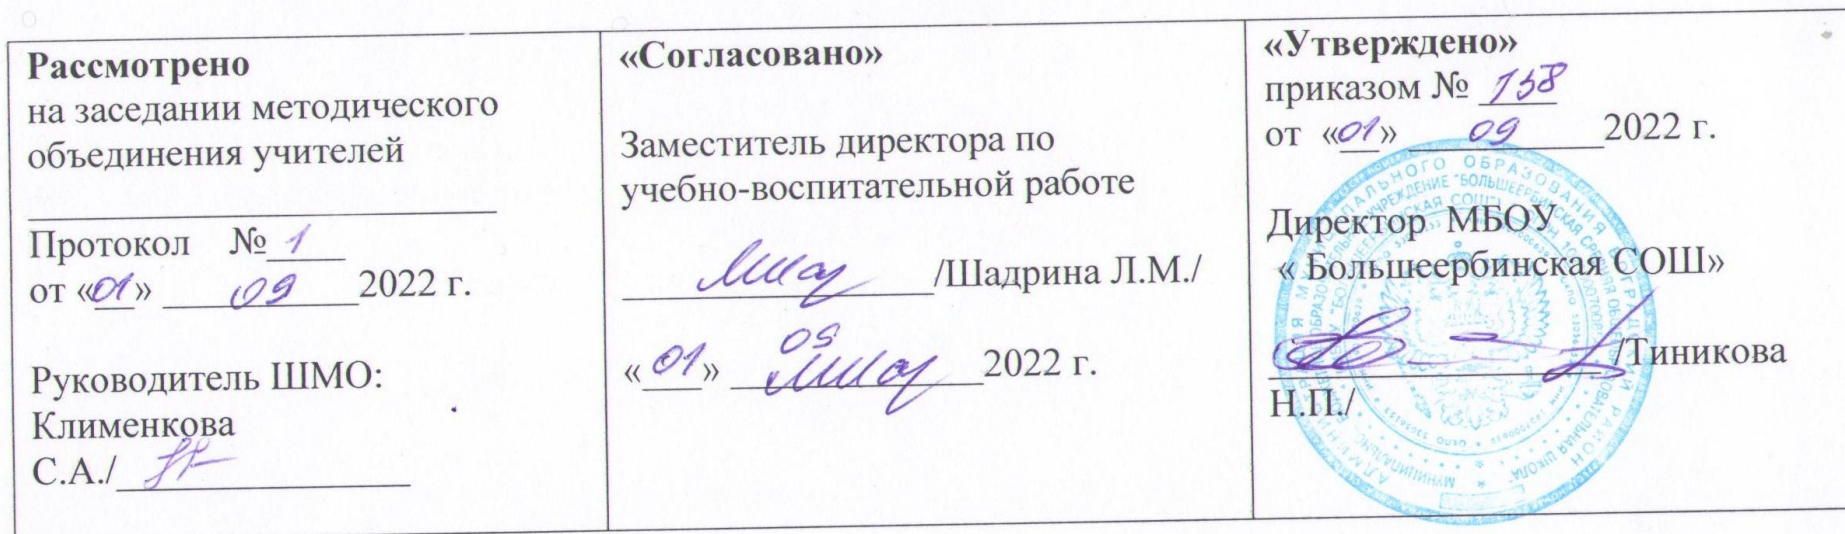 Рассмотрено
на заседании методического
объединения учителей
Протокол № 1
от «01» 09 2022 г.
Руководитель ШМО:
Клименкова
С.А./
«Согласовано»
Заместитель директора по
учебно-воспитательной работе
/Шадрина Л.М./
«01» 09 2022 г.
«Утверждено»
приказом № 158
от «01» 09 2022 г.
Директор МБОУ
« Большеербинская СОШ»
/Тиникова
Н.П./